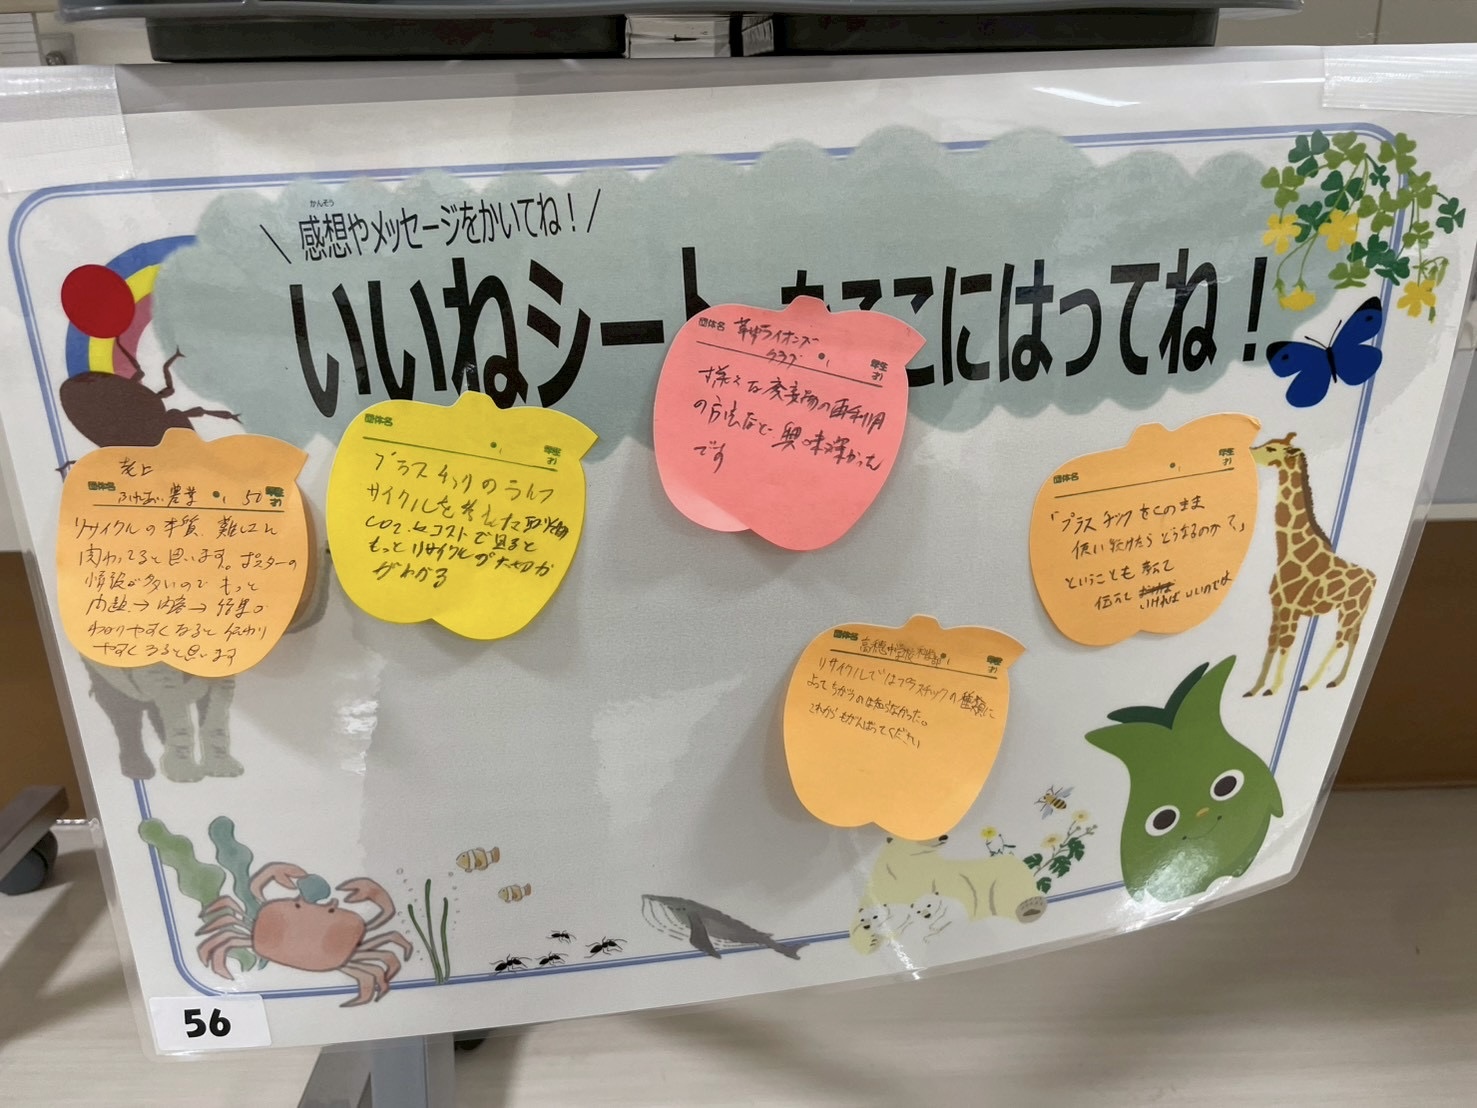 感想やメッセージをかいてね!
かんそう
いいねシート をここにはってね!
団体名 草津ライオンズ
クラブ
年生
才)
様々な廃棄物の再利用
の方法など興味深かった
です
団体名
年生
才)
プラスチックのライフ
サイクルを考えた取り組み
CO2、とコストで見ると
もっとリサイクルの大切さ
がわかる
老上
団体名 ふれあい農業 50 年生
才)
リサイクルの本質、難しさに
関わってると思います。ポスターの
情報が多いので もっと
問題→内容→結果が
わかりやすくなると伝わり
やすくなると思います
団体名
年生
才)
「プラスチックをこのまま
使い続けたらどうなるのか?」
ということも
伝えて いければいいのでは
団体名 高穂中学校 年生
才)
リサイクルではプラスチックの種類に
よってちがうのは知らなかった。
これからもがんばってください
56